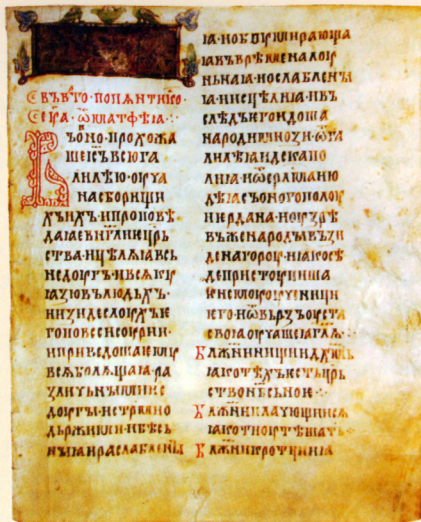 Є въ в҃ то по пѧнтико·
Єв҃га ѿ матѳеꙗ·:·
Въ оно прохожа
ше іс҃ъ всю га
лилѣю оуча
на сборищи
хъ ихъ и проповѣ
даꙗ еваньглиѥ цр҃ь
ства ицѣлѧꙗ вьсь
недоугъ и всѧкоу
ꙗзю въ людьхъ·
и изиде слоухъ ѥ
го по всеи соурии·
и приведоша ѥмоу
всѧ болѧщаꙗ ра
зличьнꙑими не
доугꙑ и
дьржимꙑ и бѣсь
нꙑꙗ и раслабленꙑ
ꙗ и обоумирающа
ꙗ въ врѣмена лоу
ньнаꙗ и ослабленꙑ
ꙗ и исцѣли ꙗ и въ
слѣдъ ѥго идоша
народи мнози ѿ га
лилѣꙗ и декапо
лиꙗ и ѿ ер҃слма и ию
дѣꙗ съ оного полоу
иердана и оузрѣ
въ же народꙑ възи
де на гороу и ꙗко сѣ
де пристоупиша
к немоу оученици
ѥго и ѿвьрзъ оуста
своꙗ оучаше ꙗ гл҃ѧ
Бл҃жнии нищии дх҃мь
ꙗко тѣхъ ѥсть цр҃ь
ство нб҃сьноѥ·:·
Бл҃жнии плачющиисѧ
ꙗко ти оутѣшатьсѧ
Бл҃жнии кротции ꙗ